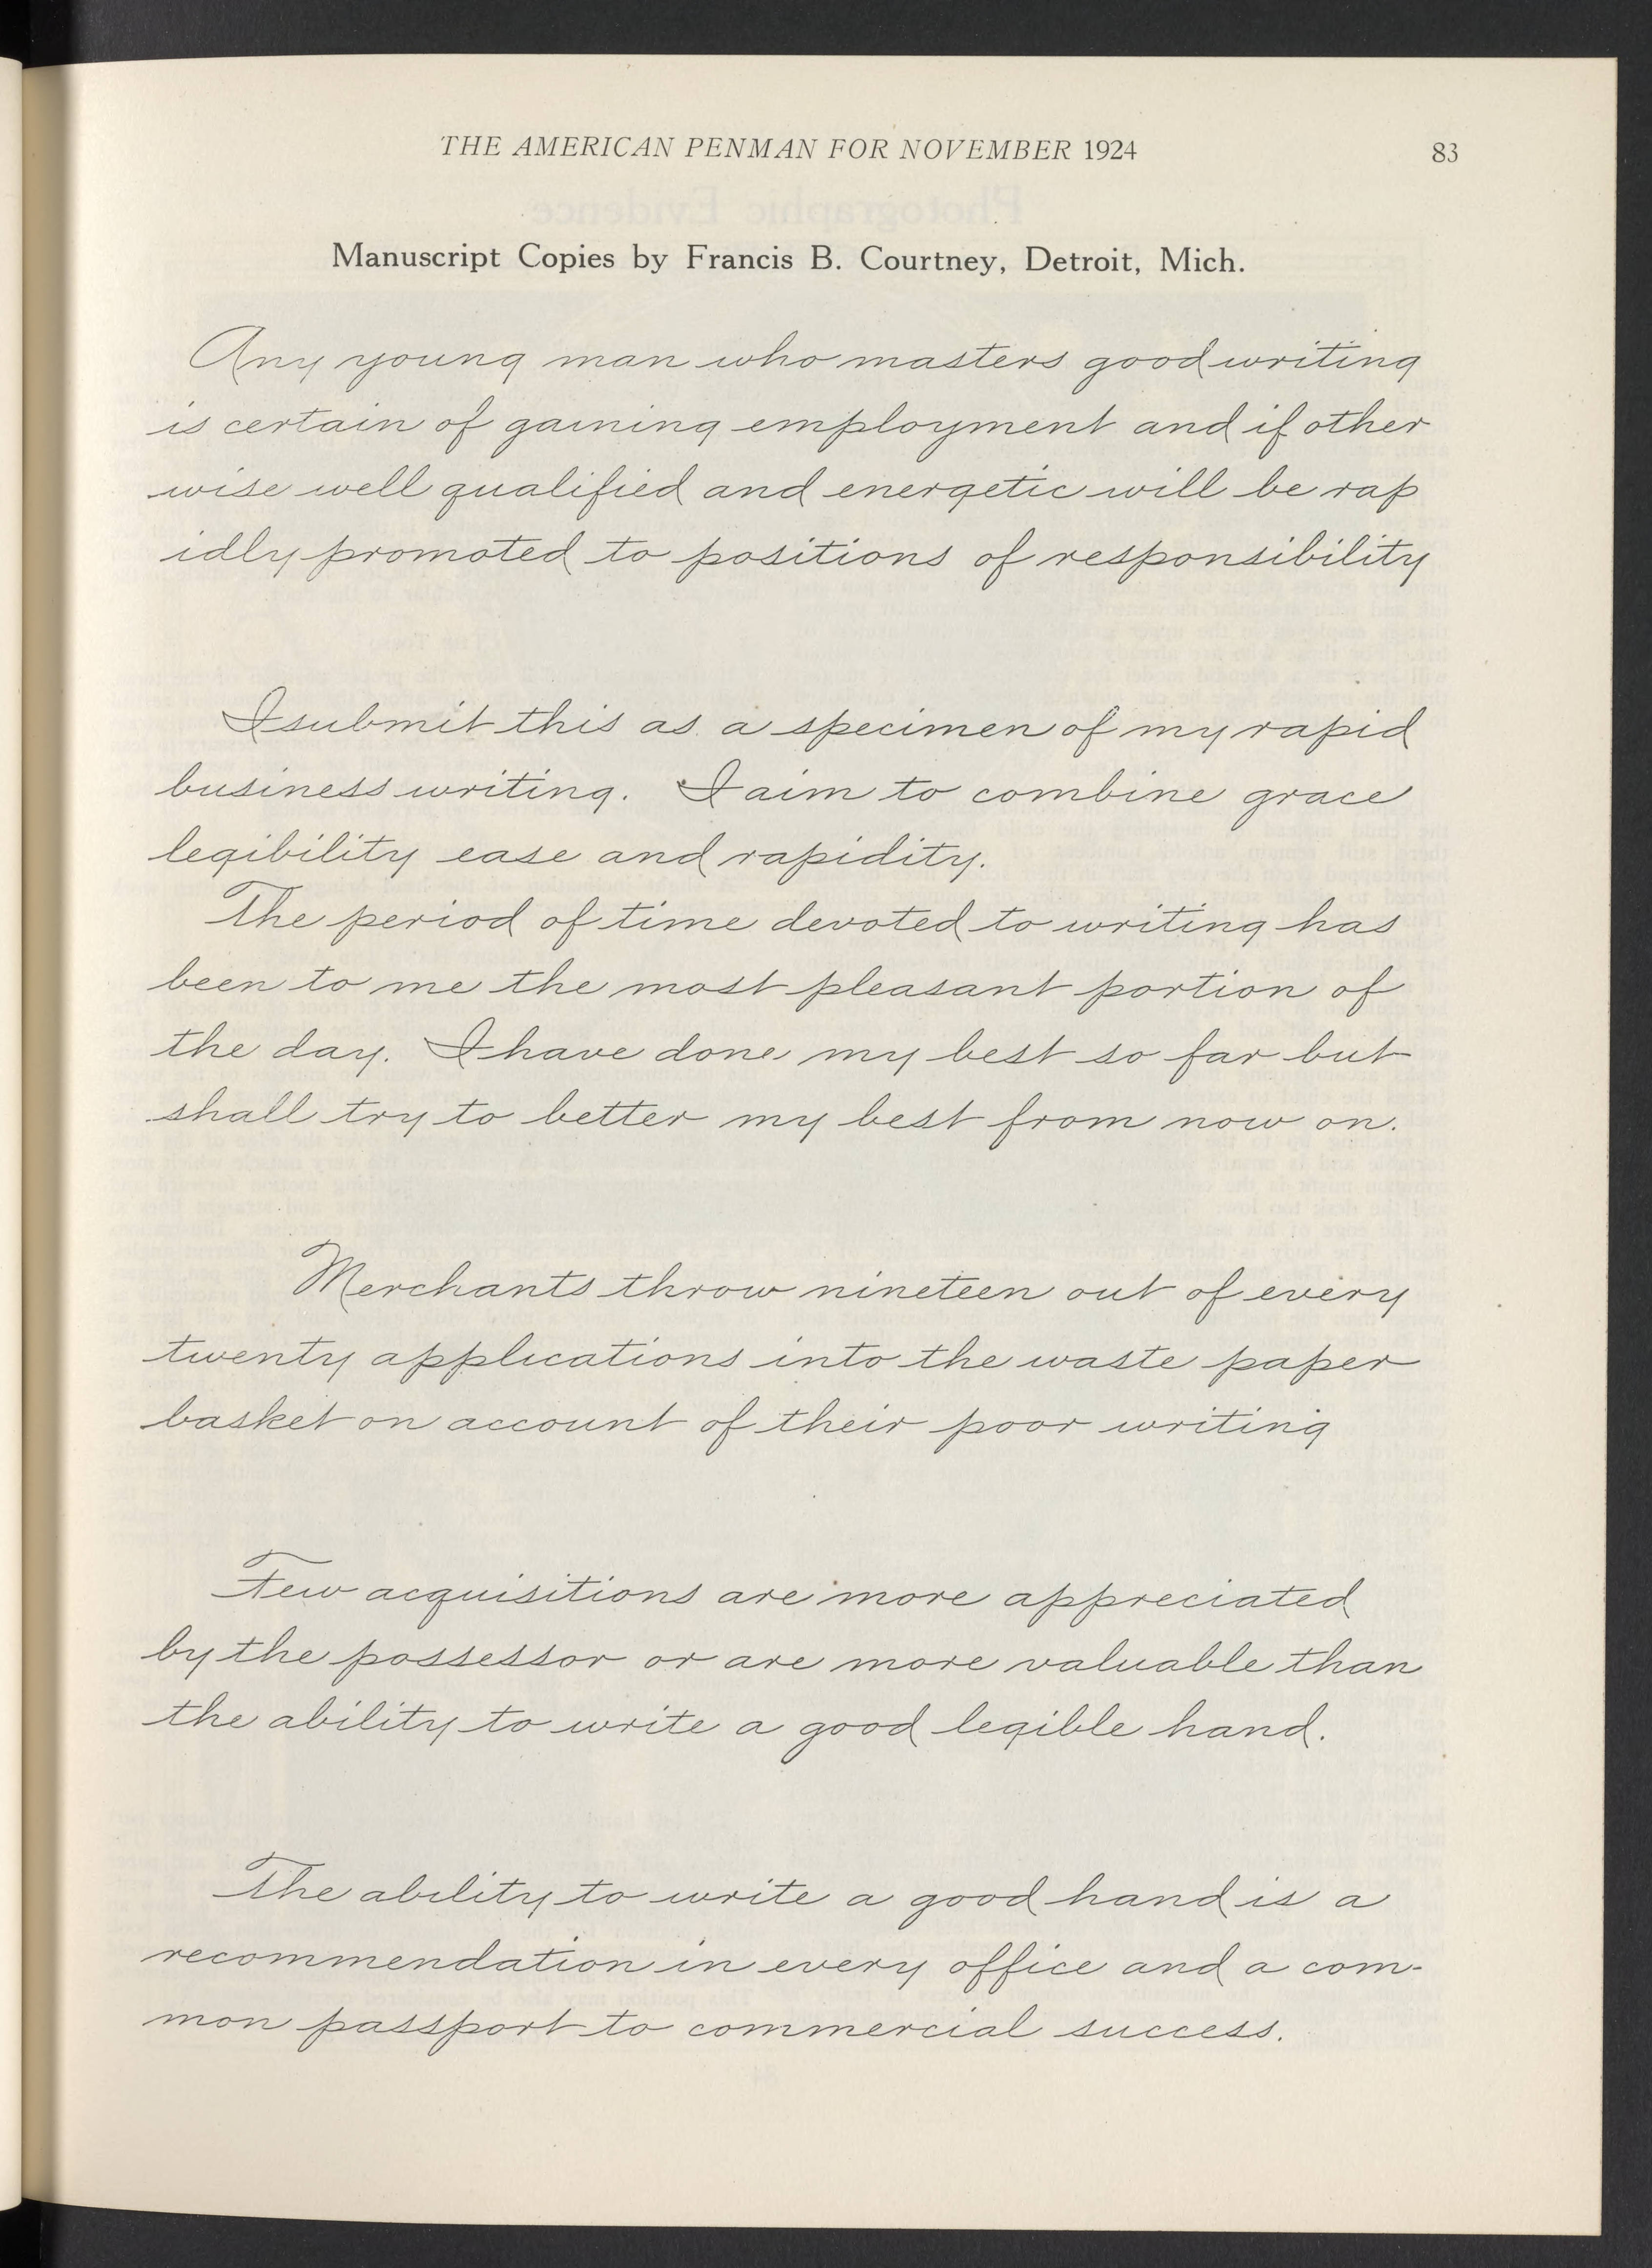 THE AMERICAN PENMAN FOR NOVEMBER 1924 83
Photographic Evidence
Manuscript Copies by Francis B. Courtney, Detroit, Mich.
Any young man who masters good writing
is certain of gaining employment and if other
wise well qualified and energetic will be rap
idly promoted to positions of responsibility
I submit this as a specimen of my rapid
business writing. I aim to combine grace
legibility ease and rapidity.
The period of time devoted to writing has
been to me the most pleasant portion of
the day. I have done my best so far but
shall try to better my best from now on.
Merchants throw nineteen out of every
twenty applications into the waste paper
basket on account of their poor writing
Few acquisitions are more appreciated
by the possessor or are more valuable than
the ability to write a good legible hand.
The ability to write a good hand is a
recommendation in every office and a com-
mon passport to commercial success.